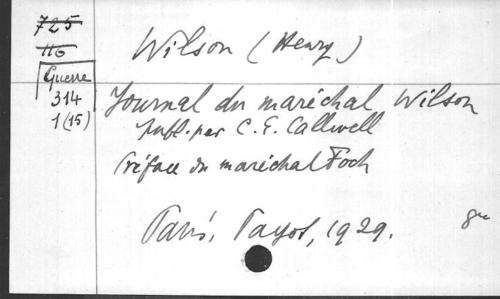 725
116
Guerre
314
1(15)
Wilson (Henry)
Journal du maréchal Wilson
publ. par C. E. Callwell
Préface du maréchal Foch
Paris, Payot, 1929.